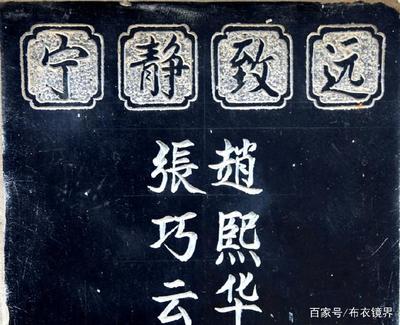 宁静致远
趙熙华
張巧云
百家号/布衣镜界